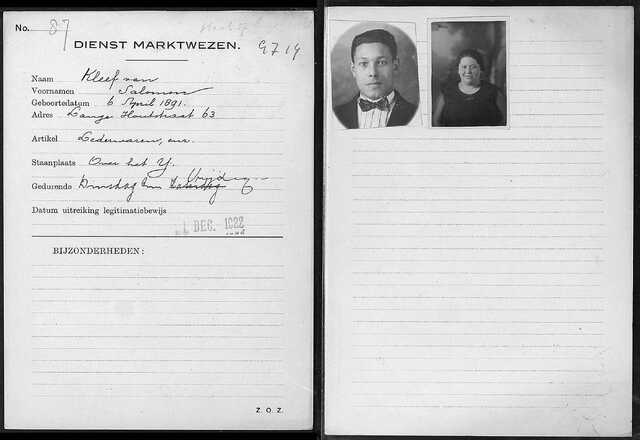 No. 87
DIENST MARKTWEZEN. G 7 14
Naam Kleef van
Voornamen Salomon
Geboortedatum 6 April 1891.
Adres Lange Houtstraat 63
Artikel Lederwaren, enz.
Staanplaats Over het Y.
Vrijdag
Gedurende Dinsdag t/m Zaterdag
Datum uitreiking legitimatiebewijs
1 DEC. 1922
BIJZONDERHEDEN:
Z. O. Z.